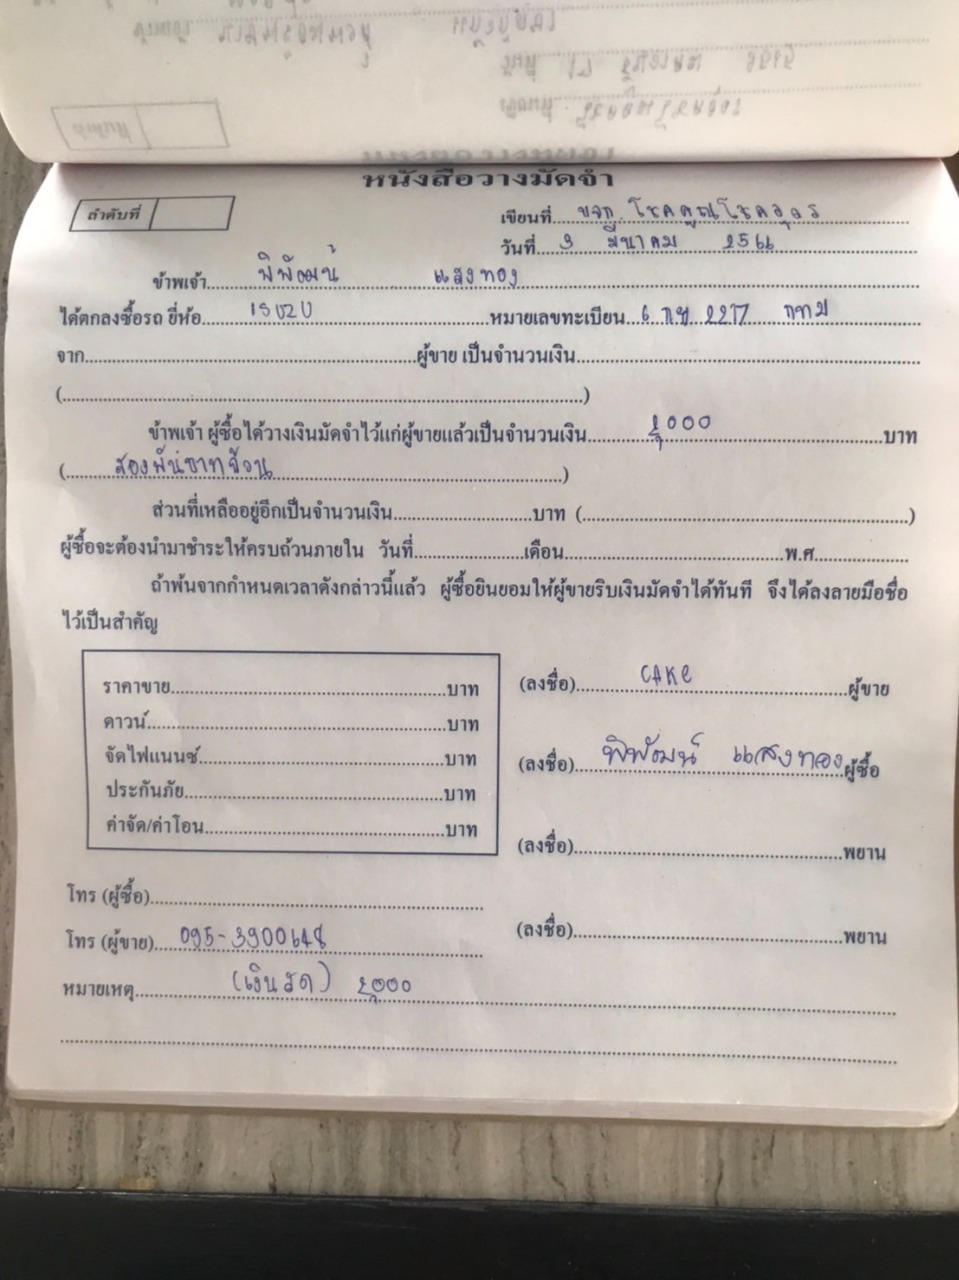 หนังสือวางมัดจำ
ลำดับที่
เขียนที่ บจก. โชคคูณโชคอุดร
วันที่ 3 มีนาคม 2566
ข้าพเจ้า พิพัฒน์ แสงทอง
ได้ตกลงซื้อรถ ยี่ห้อ ISUZU หมายเลขทะเบียน 6 กษ 2217 กทม
จาก ผู้ขาย เป็นจำนวนเงิน
( )
ข้าพเจ้า ผู้ซื้อได้วางเงินมัดจำไว้แก่ผู้ขายแล้วเป็นจำนวนเงิน 2,000 บาท
( สองพันบาทถ้วน )
ส่วนที่เหลืออยู่อีกเป็นจำนวนเงิน บาท ( )
ผู้ซื้อจะต้องนำมาชำระให้ครบถ้วนภายใน วันที่ เดือน พ.ศ.
ถ้าพ้นจากกำหนดเวลาดังกล่าวนี้แล้ว ผู้ซื้อยินยอมให้ผู้ขายริบเงินมัดจำได้ทันที จึงได้ลงลายมือชื่อ
ไว้เป็นสำคัญ
ราคาขาย บาท
ดาวน์ บาท
จัดไฟแนนซ์ บาท
ประกันภัย บาท
ค่าจัด/ค่าโอน บาท
(ลงชื่อ) CAKE ผู้ขาย
(ลงชื่อ) พิพัฒน์ แสงทอง ผู้ซื้อ
(ลงชื่อ) พยาน
(ลงชื่อ) พยาน
โทร (ผู้ซื้อ)
โทร (ผู้ขาย) 095-3900648
หมายเหตุ (เงินสด) 2,000